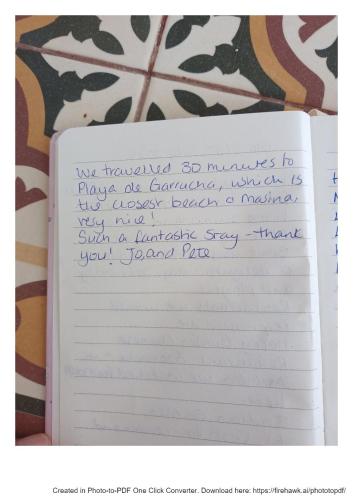 We travelled 30 minutes to
Playa de Garrucha, which is
the closest beach a marina,
very nice!
Such a fantastic stay - thank
you! Jo, and Pete
Created in Photo-to-PDF One Click Converter. Download here: https://firehawk.ai/phototopdf/